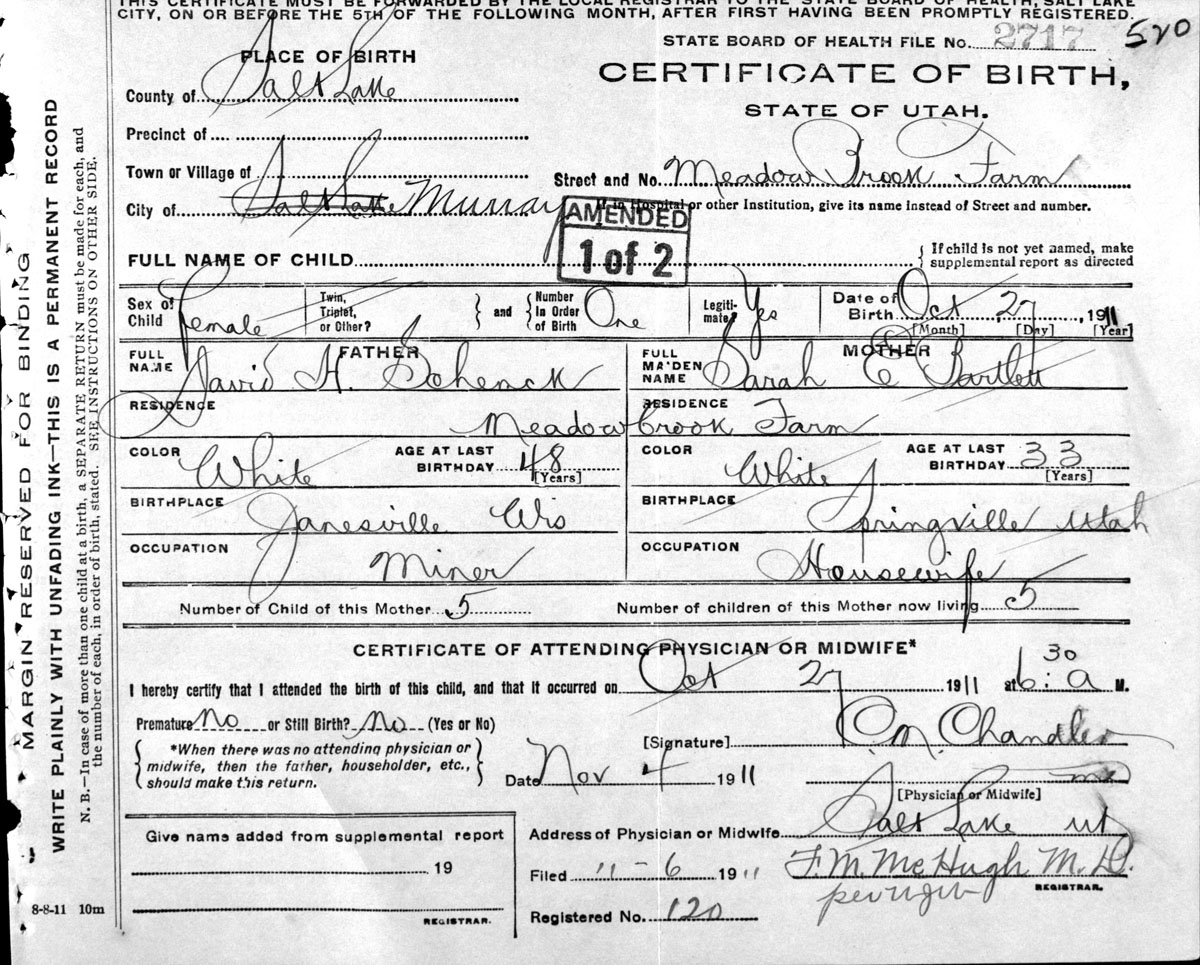 THIS CERTIFICATE MUST BE FORWARDED BY THE LOCAL REGISTRAR TO THE STATE BOARD OF HEALTH, SALT LAKE
CITY, ON OR BEFORE THE 5TH OF THE FOLLOWING MONTH, AFTER FIRST HAVING BEEN PROMPTLY REGISTERED.
STATE BOARD OF HEALTH FILE No. 2717 520
PLACE OF BIRTH
CERTIFICATE OF BIRTH,
STATE OF UTAH.
County of Salt Lake
Precinct of
Town or Village of
Street and No. Meadow Brook Farm
City of Salt Lake Murray
If in Hospital or other Institution, give its name instead of Street and number.
AMENDED
1 of 2
FULL NAME OF CHILD
{ If child is not yet named, make
supplemental report as directed
Sex of Child Female
Twin, Triplet, or Other?
and Number in Order of Birth One
Legitimate? Yes
Date of Birth Oct 27, 1911
[Month] [Day] [Year]
FATHER
FULL NAME David H. Schenck
MOTHER
FULL MAIDEN NAME Sarah E Bartlett
RESIDENCE Meadowbrook Farm RESIDENCE
COLOR White AGE AT LAST BIRTHDAY 48 [Years]
COLOR White AGE AT LAST BIRTHDAY 33 [Years]
BIRTHPLACE Janesville Wis
BIRTHPLACE Springville Utah
OCCUPATION Miner
OCCUPATION Housewife
Number of Child of this Mother 5 Number of children of this Mother now living 5
CERTIFICATE OF ATTENDING PHYSICIAN OR MIDWIFE*
I hereby certify that I attended the birth of this child, and that it occurred on Oct 27 1911 at 6:30 a M.
Premature No or Still Birth? No (Yes or No)
[Signature] C. M. Chandler
{ *When there was no attending physician or
midwife, then the father, householder, etc.,
should make this return. }
Date Nov 4 1911
[Physician or Midwife]
Address of Physician or Midwife Salt Lake Ut
Give name added from supplemental report
19
REGISTRAR.
Filed 11-6 1911 F. M. McHugh M. D.
REGISTRAR.
Registered No. 120
8-8-11 10m
MARGIN RESERVED FOR BINDING
WRITE PLAINLY WITH UNFADING INK—THIS IS A PERMANENT RECORD
N. B.—In case of more than one child at a birth, a SEPARATE RETURN must be made for each, and
the number of each, in order of birth, stated. SEE INSTRUCTIONS ON OTHER SIDE.